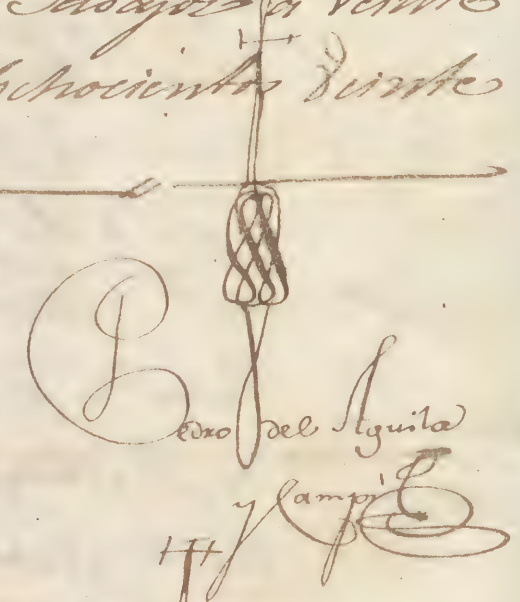 a Veinte
ochocientos Veinte
Pedro del Aguila
y Campi